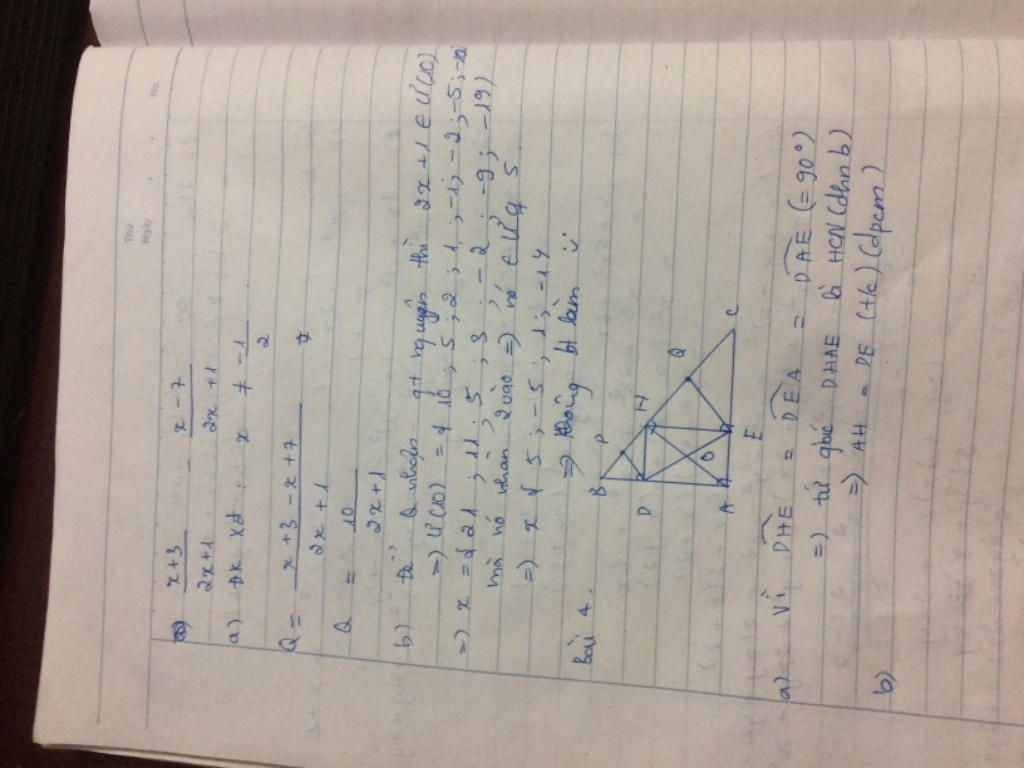 Thứ
Ngày
No.
x+3 x-7
2x+1 2x+1
a) ĐK xđ : x ≠ -1
2
Q = x+3-x+7
2x+1
Q = 10
2x+1
b) Để Q nhận gt nguyên thì 2x+1 ∈ Ư(10)
=) Ư(10) = { 10 ; 5 ; 2 ; 1 ; -1 ; -2 ; -5 ; -10
=) x = { 21 ; 11 ; 5 ; 3 ; -2 ; -9 ; -19)
mà nó nhân =) nó ∈ Ư 5
=) x { 5 ; -5 ; 1 ; -14
=) Không bt làm
Bài 4.
B P H Q C
D O
A E
a) Vì DHE = DEA = DAE (= 90°)
=) tứ giác DHAE là HCN (dhnb)
=) AH = DE (t/c) (đpcm)
b)